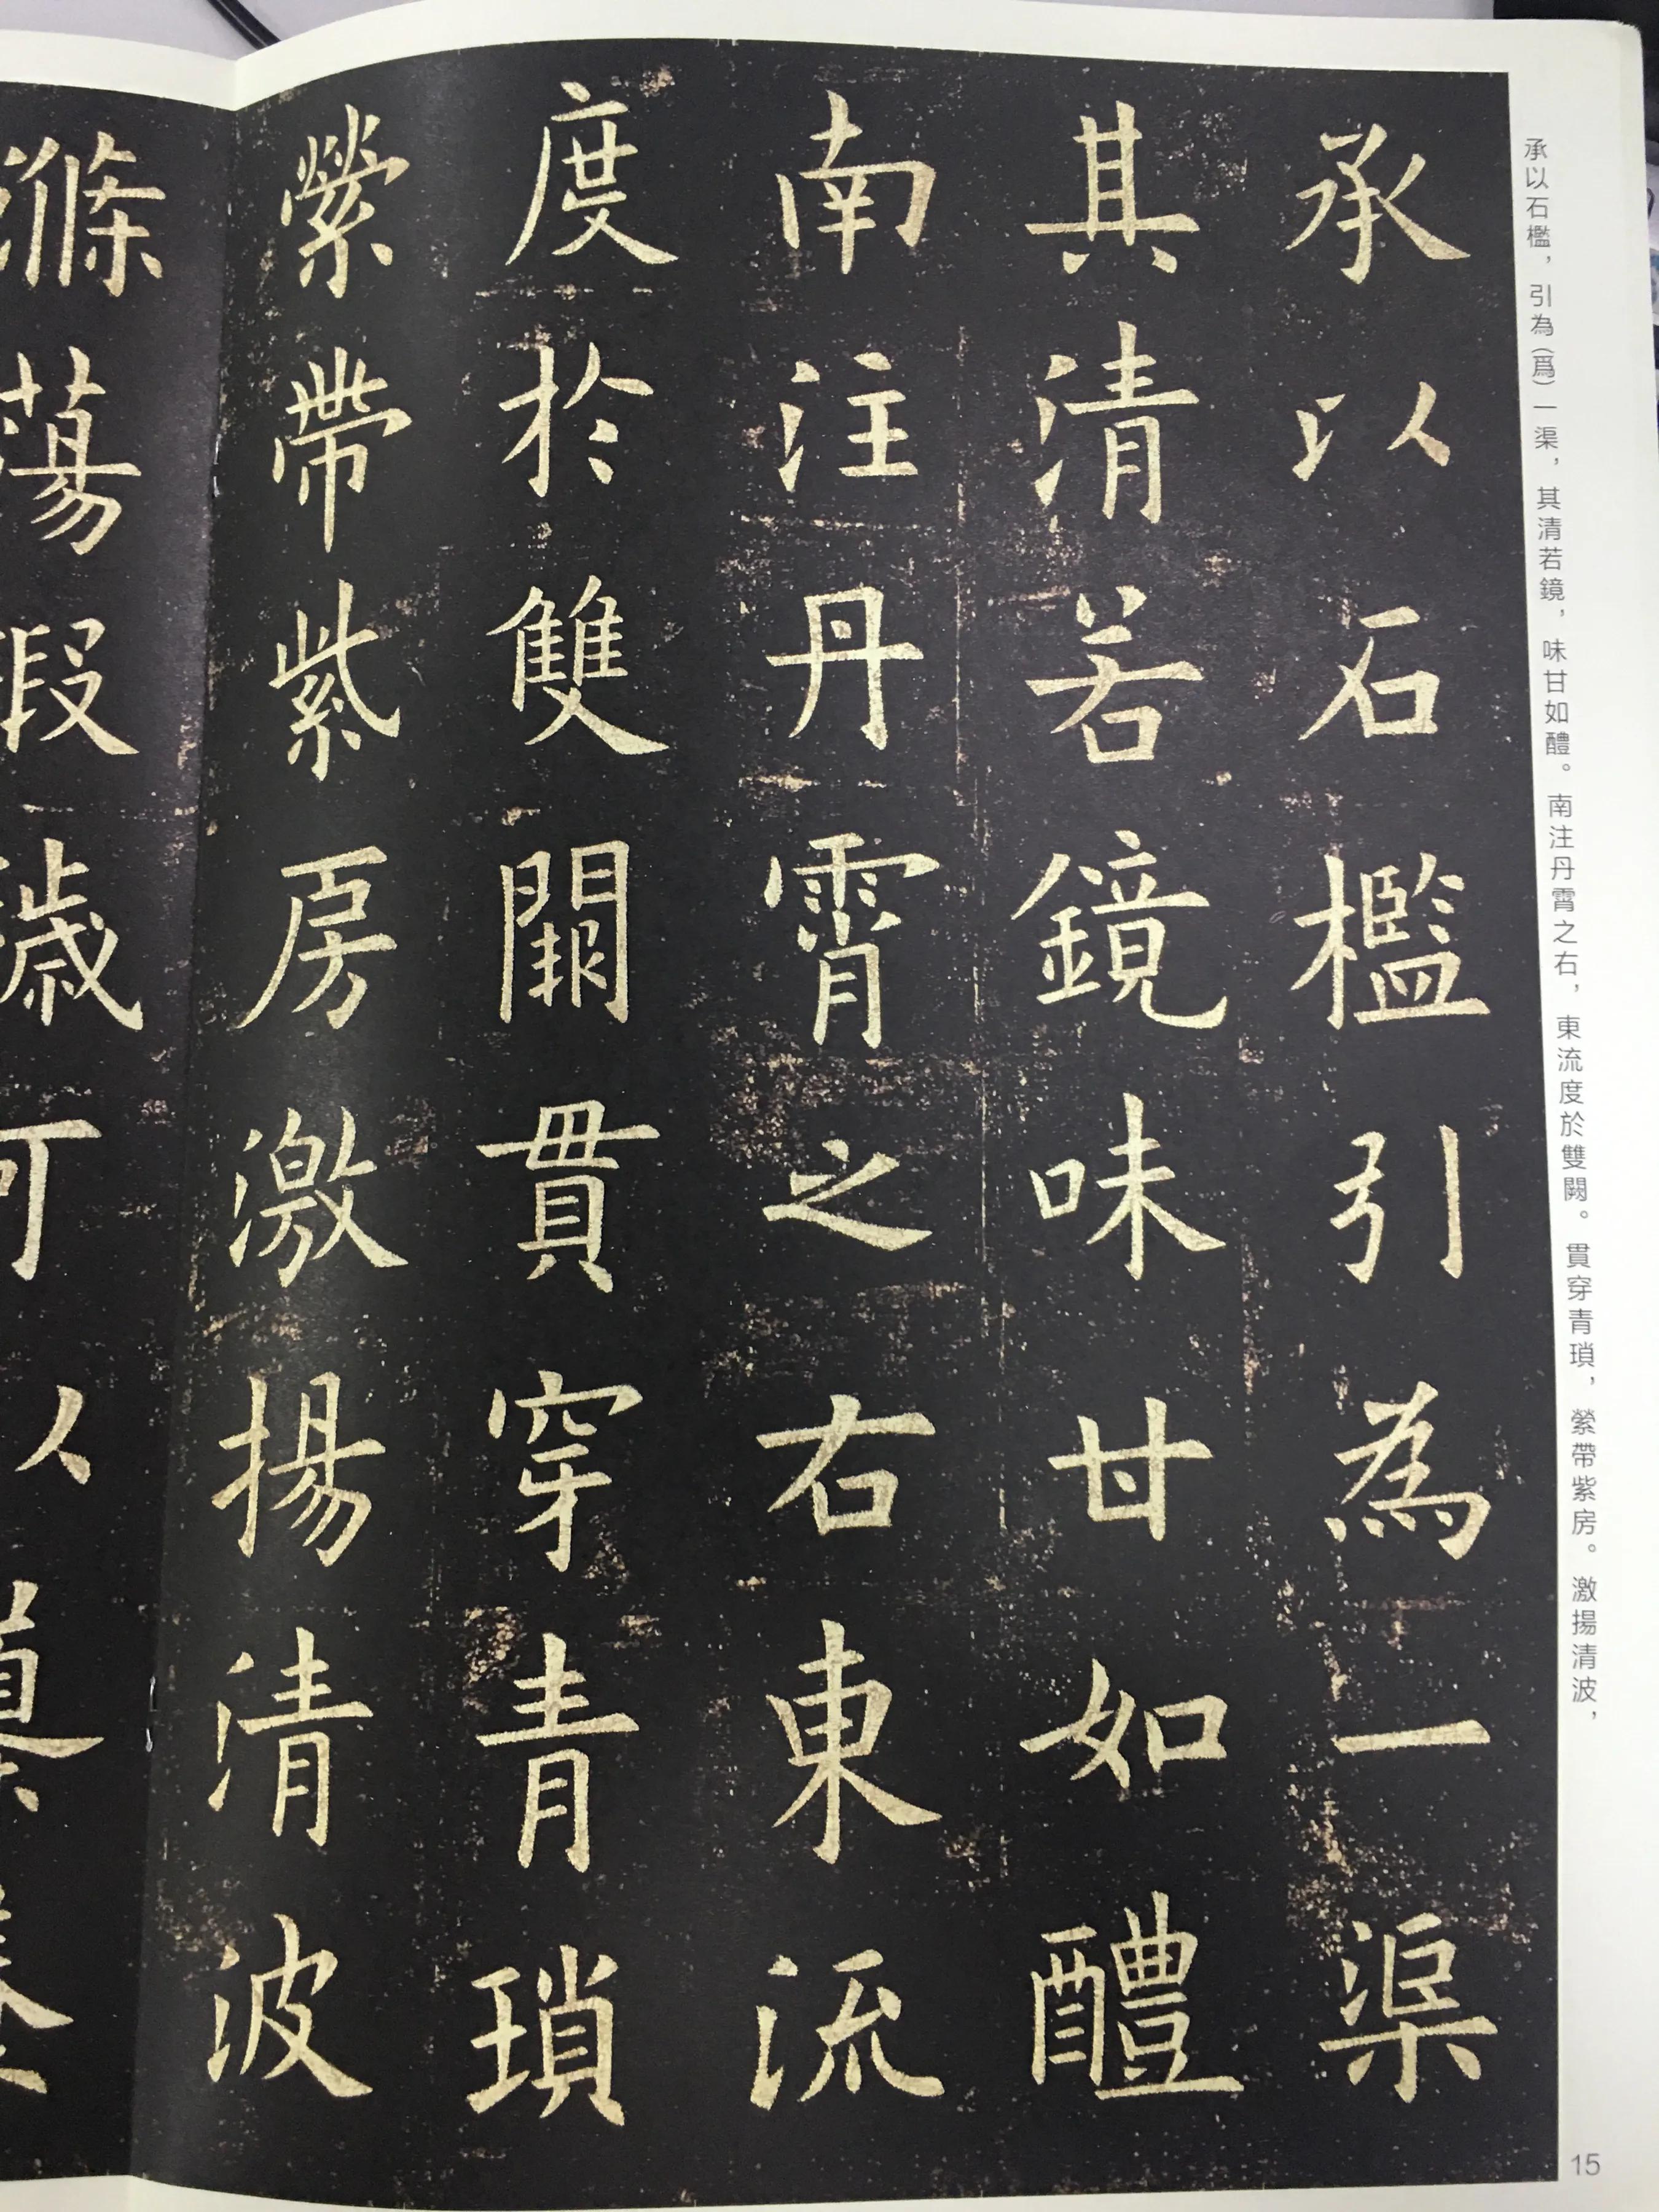 承以石檻，引為（爲）一渠，其清若鏡，味甘如醴。南注丹霄之右，東流度於雙闕。貫穿青瑣，縈帶紫房。激揚清波，
承以石檻引為一渠
其清若鏡味甘如醴
南注丹霄之右東流
度於雙闕貫穿青瑣
縈帶紫房激揚清波
滌蕩瑕穢可以
15